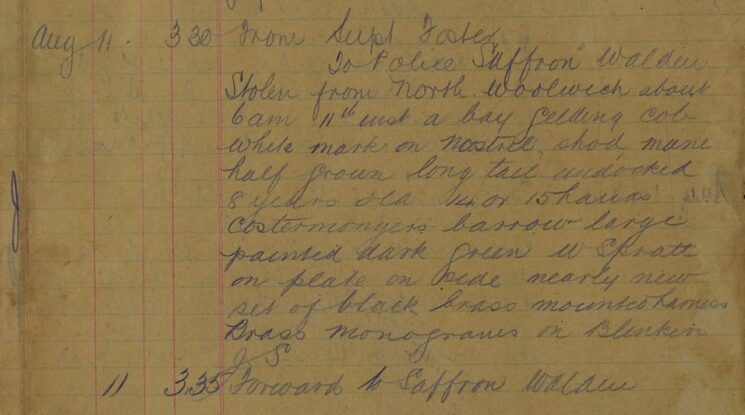 Aug. 11 3 30 From Supt Foster
To Police Saffron Walden
Stolen from North Woolwich about
6am 11th inst a bay gelding cob
white mark on nostrel shod mane
half grown long tail undocked
8 years old 14 or 15 hands
costermongers barrow large
painted dark green W Spratt
on plate on side nearly new
set of black brass mounted harness
Brass monograms on Blinkers
J S
11 3.35 Forward to Saffron Walden